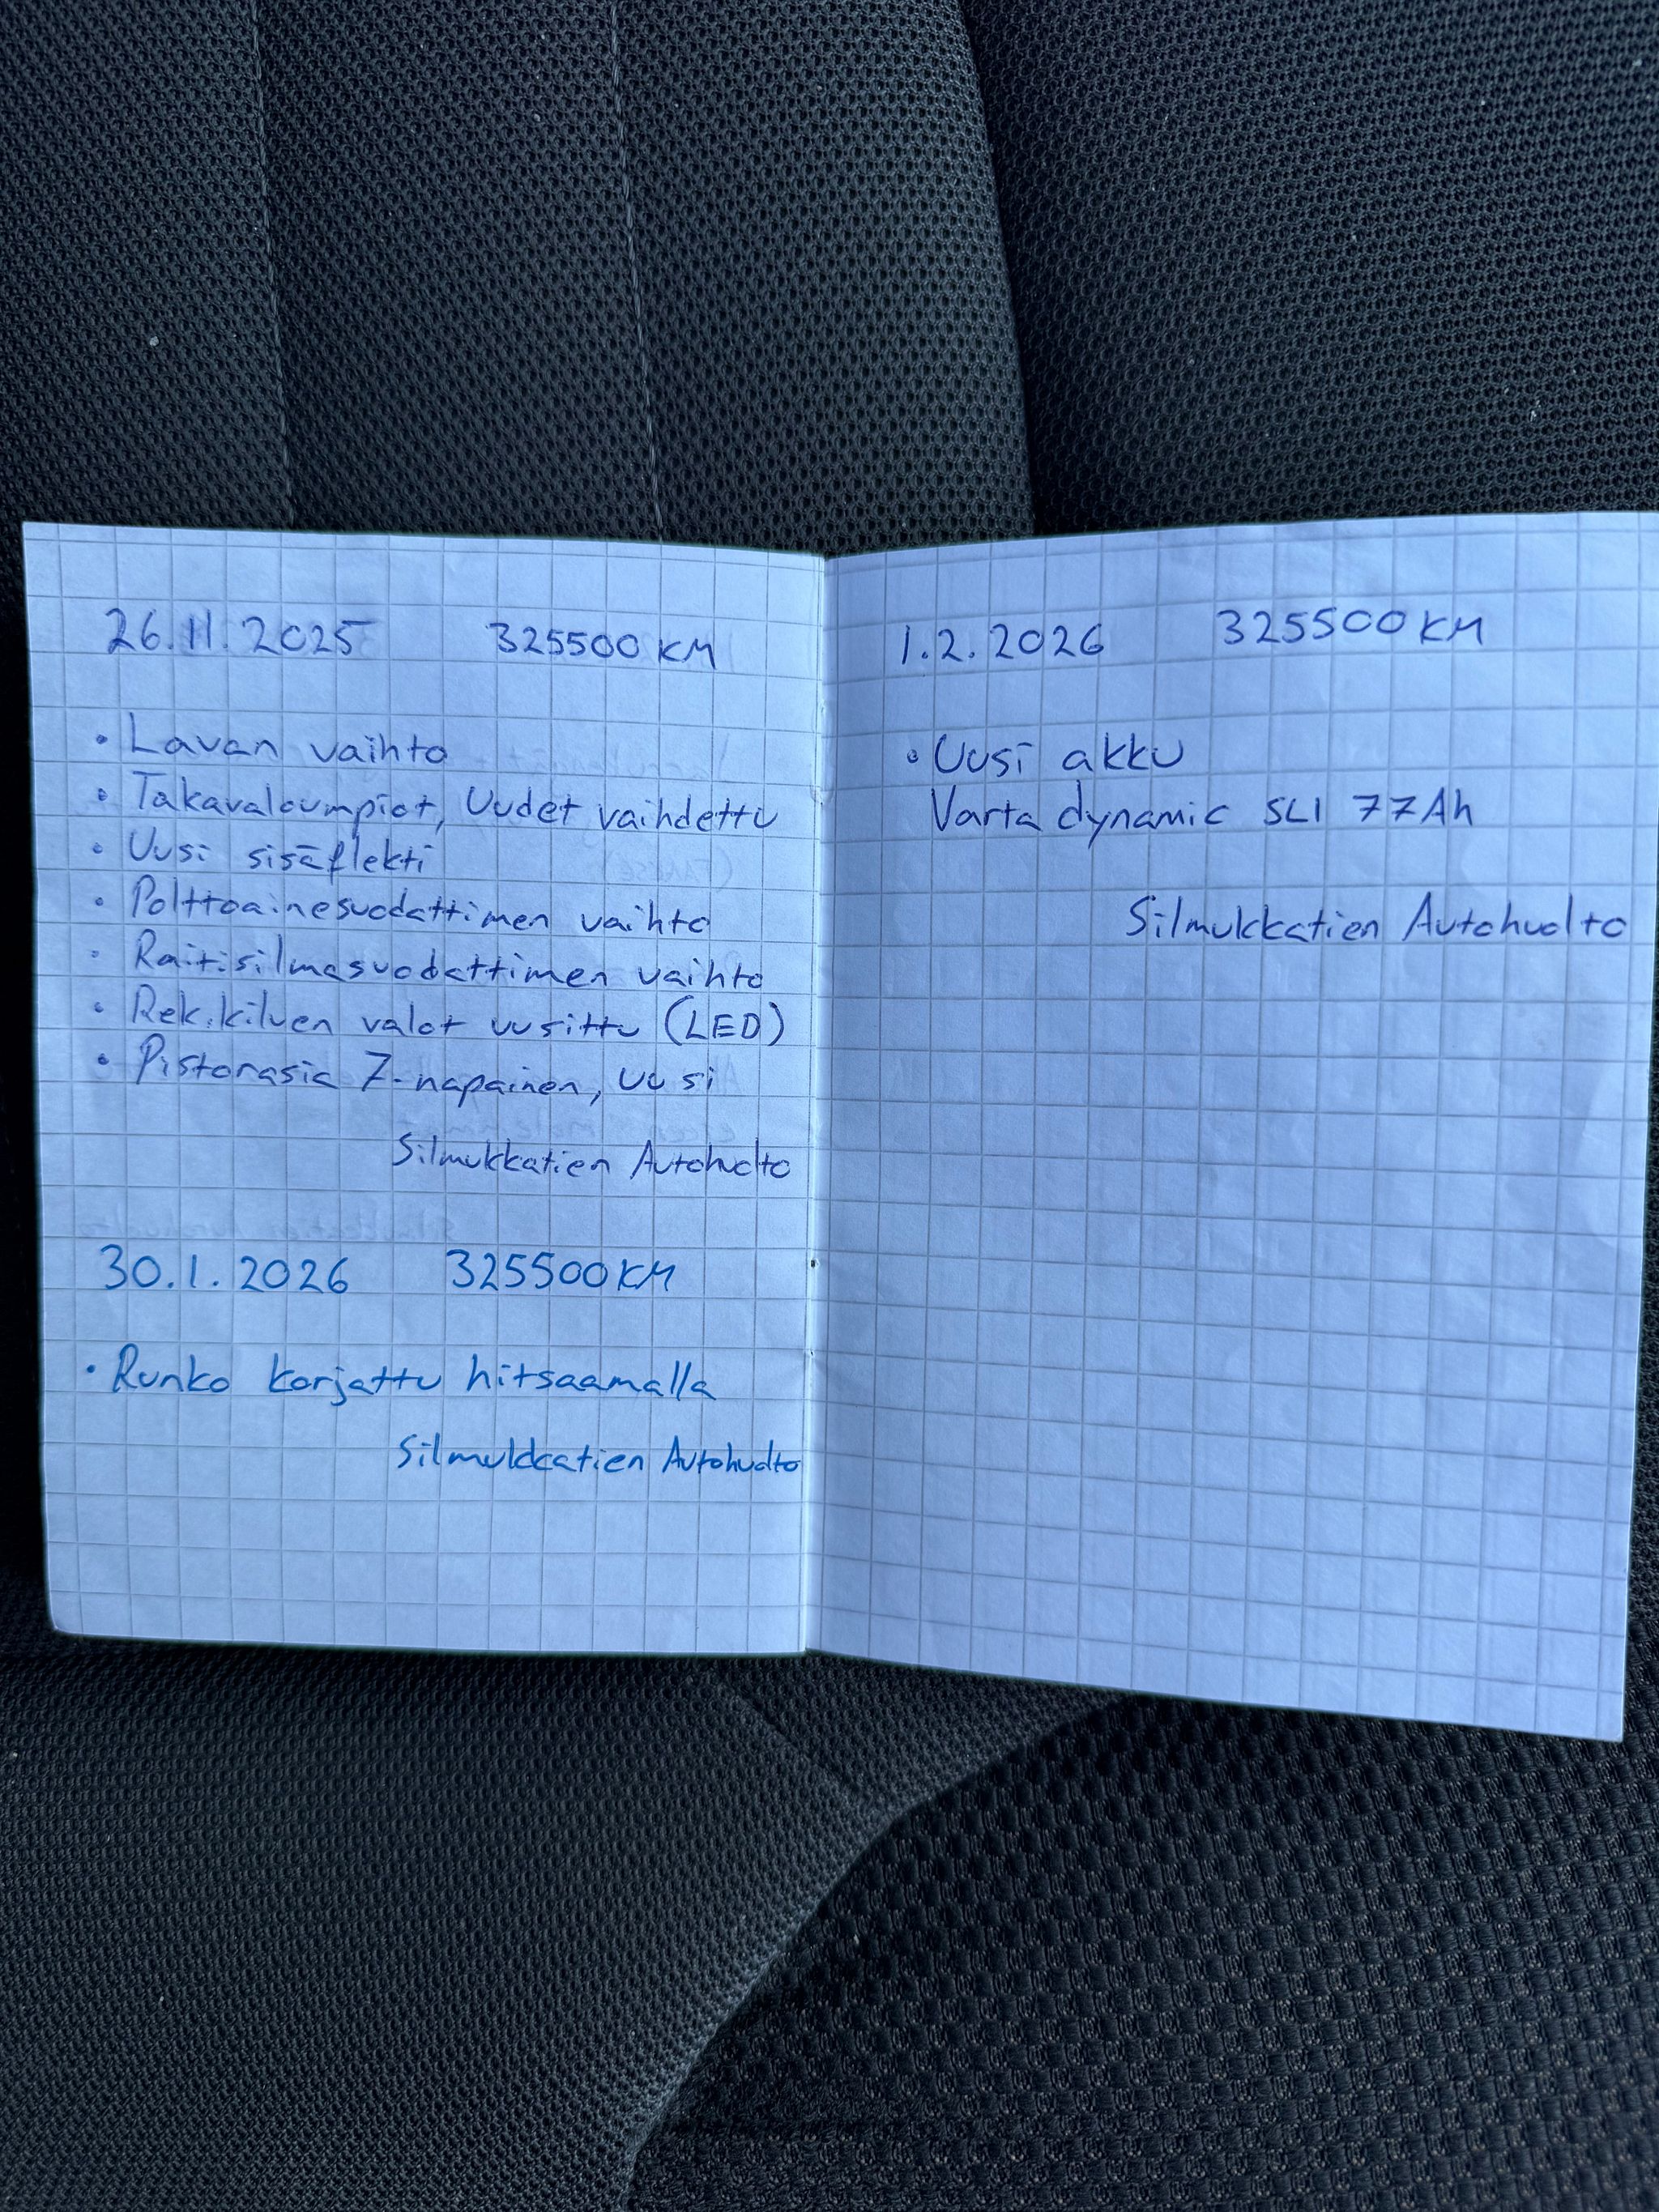 26.11.2025 325500 KM
• Lavan vaihto
• Takavaloumpiot, Uudet vaihdettu
• Uusi sisäflekti
• Polttoainesuodattimen vaihto
• Raitisilmasuodattimen vaihto
• Rek.kilven valot uusittu (LED)
• Pistorasia 7-napainen, uusi
Silmukkatien Autohuolto
30.1.2026 325500 KM
• Runko korjattu hitsaamalla
Silmukkatien Autohuolto
1.2.2026 325500 KM
• Uusi akku
Varta dynamic SLI 77Ah
Silmukkatien Autohuolto